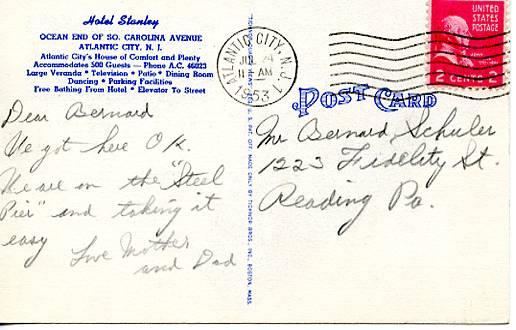 Hotel Stanley
OCEAN END OF SO. CAROLINA AVENUE
ATLANTIC CITY, N. J.
Atlantic City's House of Comfort and Plenty
Accommodates 500 Guests — Phone A.C. 46023
Large Veranda * Television * Patio * Dining Room
Dancing * Parking Facilities
Free Bathing From Hotel * Elevator To Street
Dear Bernard
We got here O.K.
We are on the "Steel
Pier" and taking it
easy
Love Mother
and Dad
ATLANTIC CITY, N.J.
AM
1953
UNITED
STATES
POSTAGE
2 CENTS 2
POST CARD
Mr Bernard Schuler
1223 Fidelity St.
Reading Pa.
MADE ONLY BY TICHNOR BROS., INC., BOSTON, MASS.